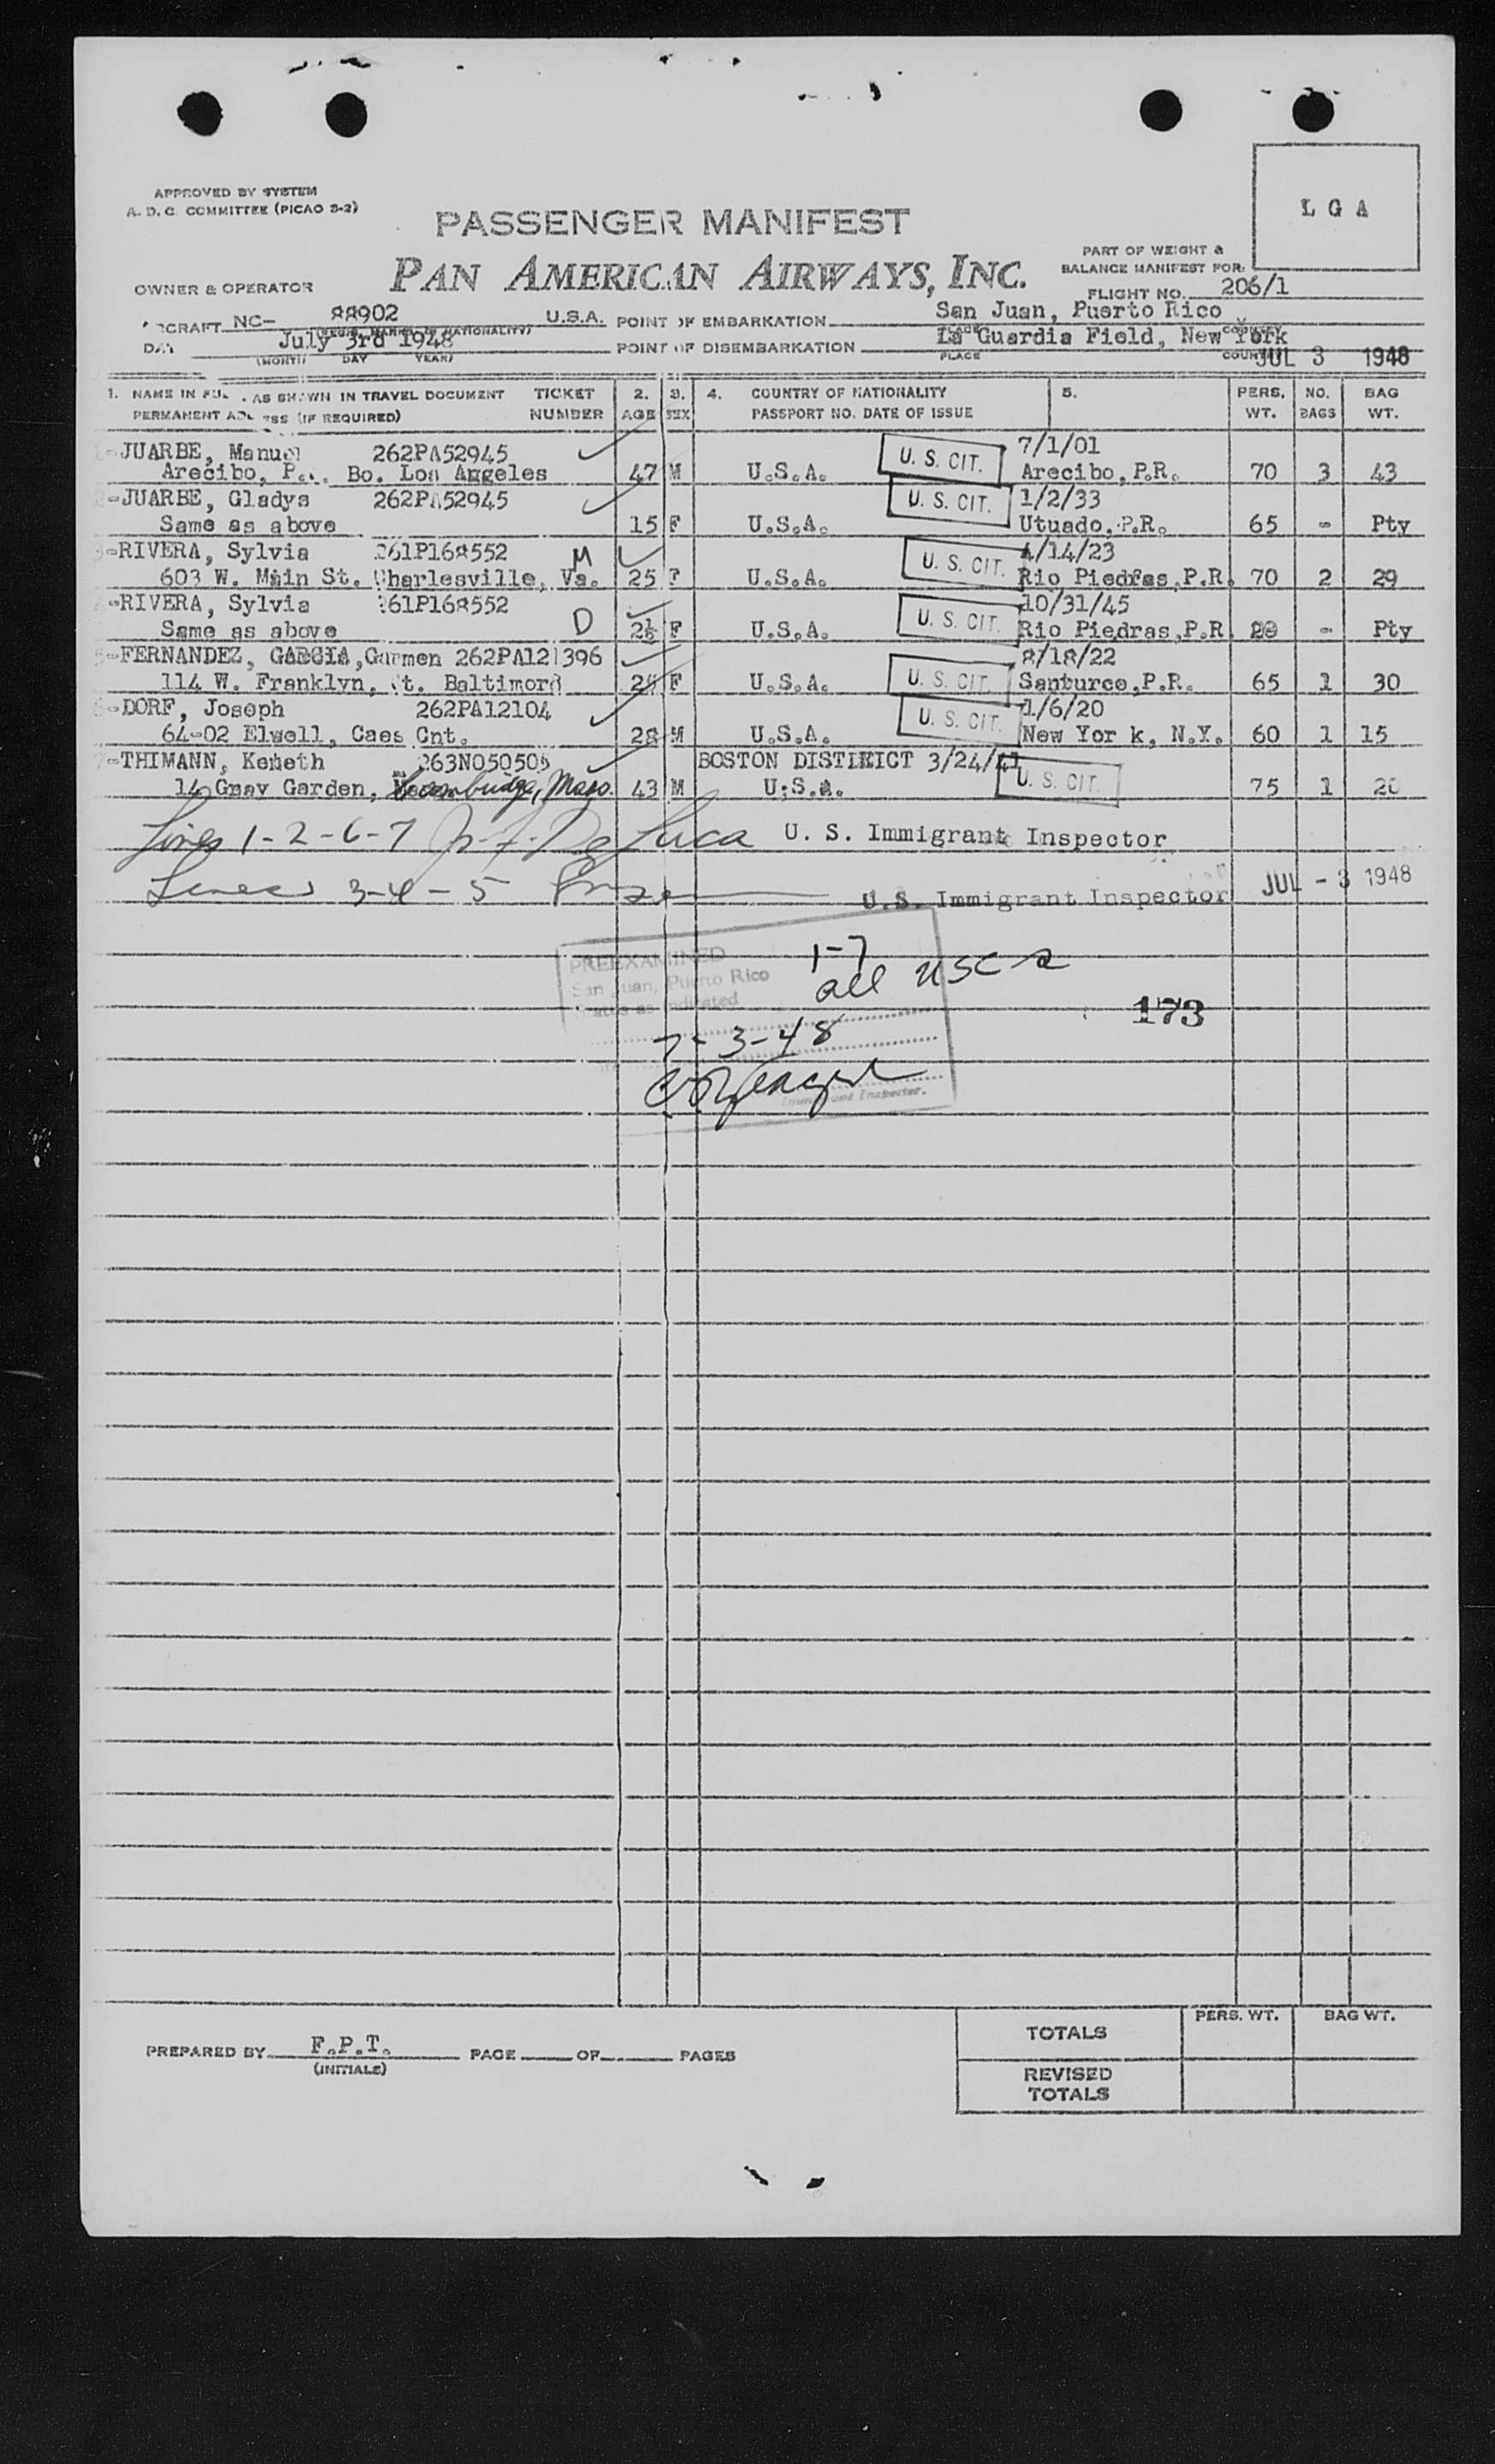 APPROVED BY SYSTEM
A. D. C. COMMITTEE (PICAO 3-2)
L G A
PASSENGER MANIFEST
PAN AMERICAN AIRWAYS, INC.
PART OF WEIGHT &
BALANCE MANIFEST FOR:
OWNER & OPERATOR
FLIGHT NO. 206/1
NC- 88902 U.S.A. POINT OF EMBARKATION San Juan, Puerto Rico
July 3rd 1948 POINT OF DISEMBARKATION La Guardia Field, New York
(MONTH) DAY YEAR) PLACE JUL 3 1948
1. NAME IN AS SHOWN IN TRAVEL DOCUMENT TICKET 2. 3. 4. COUNTRY OF NATIONALITY 5. PERS. NO. BAG
PERMANENT (IF REQUIRED) NUMBER AGE SEX PASSPORT NO. DATE OF ISSUE WT. BAGS WT.
JUARBE, Manuel 262PA52945 U. S. CIT. 7/1/01
Arecibo, Bo. Los Angeles 47 M U.S.A. Arecibo, P.R. 70 3 43
JUARBE, Gladys 262PA52945 U. S. CIT. 1/2/33
Same as above 15 F U.S.A. Utuado, P.R. 65 - Pty
RIVERA, Sylvia 261P168552 M U. S. CIT. 4/14/23
603 W. Main St. Charlesville, Va. 25 F U.S.A. Rio Piedras, P.R. 70 2 29
RIVERA, Sylvia 261P168552 D U. S. CIT. 10/31/45
Same as above 2½ F U.S.A. Rio Piedras, P.R. - Pty
FERNANDEZ, GARCIA, Carmen 262PA121396 8/18/22
114 W. Franklyn, St. Baltimore F U.S.A. U. S. CIT. Santurce, P.R. 65 1 30
DORF, Joseph 262PA12104 U. S. CIT. 1/6/20
64-02 Elwell, Caes Cnt. 28 M U.S.A. New Yor k, N.Y. 60 1 15
THIMANN, Keneth BOSTON DISTRICT 3/24/41
14 Gray Garden, Cambridge, Mass. 43 M U.S.A. U. S. CIT. 75 1 20
Lines 1-2-6-7 De Luca U. S. Immigrant Inspector
Lines 3-4-5 U.S. Immigrant Inspector JUL - 3 1948
PREEXAMINED 1-7
San Juan, Puerto Rico all USC
Status as indicated
173
7-3-48
Immigrant Inspector.
PREPARED BY F.P.T. PAGE OF PAGES
(INITIALS)
TOTALS PERS. WT. BAG WT.
REVISED
TOTALS